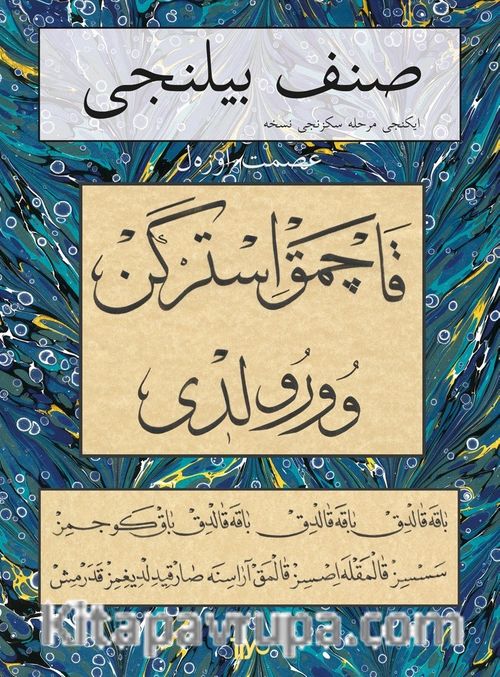 صنف بيلنجی
ايكنجی مرحله سكزنجی نسخه
عصمت اوره‌ل
قَاچمَقْ اِسْتَرْكَنْ
وُورُولْدِی
بَاقَه قَالدِقْ بَاقَه قَالدِقْ بَاقَه قَالدِقْ بَاقْ كوجمز
سَسْسِزْ قَالمَقْلَه اِصسِز قَالمَقْ آرَاسِنَه صَارقيدلديغمز قَدَرمش
kitapavrupa.com